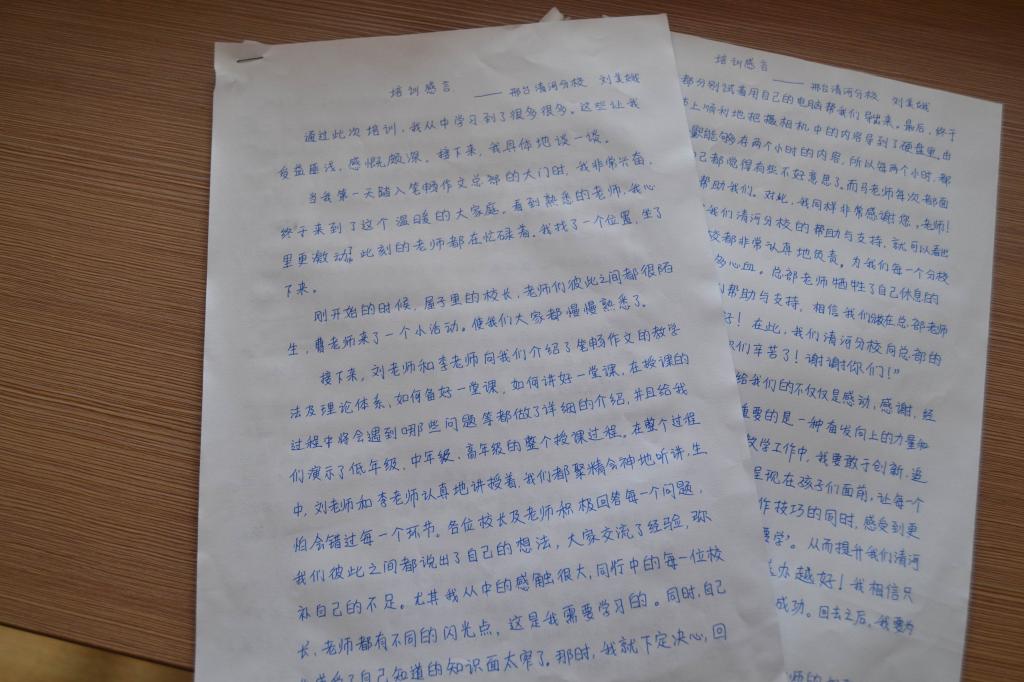 培训感言 ——邢台清河分校 刘美娥
通过此次培训，我从中学习到了很多很多。这些让我
受益匪浅，感慨颇深。接下来，我具体地谈一谈。
当我第一天踏入笔畅作文总部的大门时，我非常兴奋，
终于来到了这个温暖的大家庭，看到熟悉的老师，我心
里更激动了。此刻的老师都在忙碌着。我找了一个位置，坐了
下来。
刚开始的时候，屋子里的校长，老师们彼此之间都很陌
生，曹老师来了一个小活动。使我们大家都慢慢熟悉了。
接下来，刘老师和李老师向我们介绍了笔畅作文的教学
法及理论体系，如何备好一堂课，如何讲好一堂课，在授课的
过程中将会遇到哪些问题等都做了详细的介绍，并且给我
们演示了低年级，中年级、高年级的整个授课过程。在整个过程
中，刘老师和李老师认真地讲授着，我们都聚精会神地听讲，生
怕会错过每一个环节。各位校长及老师积极回答每一个问题，
我们彼此之间都说出了自己的想法，大家交流了经验，弥
补自己的不足。尤其我从中的感触很大，同行中的每一位校
长，老师都有不同的闪光点，这是我需要学习的。同时，自己
了自己知道的知识面太窄了。那时，我就下定决心，回
培训感言
——邢台清河分校 刘美娥
都分别试着用自己的电脑帮我们导出来。最后，终于
上顺利地把摄相机中的内容导到了硬盘里。由
能够存两个小时的内容，所以每两个小时，都
己都觉得有些不好意思了。而马老师每次都面
帮助我们。对此，我同样非常感谢您，老师！
我们清河分校的帮助与支持，就可以看出
校都非常认真地负责。为我们每一个分校
多心血。总部老师牺牲了自己休息的
帮助与支持，相信我们做在总部老师
好！在此，我们清河分校向总部的
你们辛苦了！谢谢你们！”
给我们的不仅仅是感动，感谢，经
重要的是一种奋发向上的力量和
教学工作中，我要敢于创新，追
呈现在孩子们面前，让每个
作技巧的同时，感受到更
要学”。从而提升我们清河
办越好！我相信只
成功。回去之后，我要为
师的